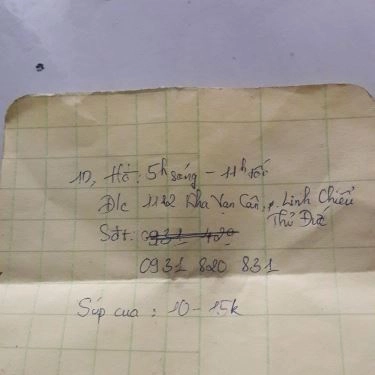 10, Hđ: 5h sáng - 11h tối
Đ/c 1122 Kha Vạn Cân, p. Linh Chiểu
Thủ Đức
Sđt: 0931 420
0931 820 831
Súp cua : 10 - 15k